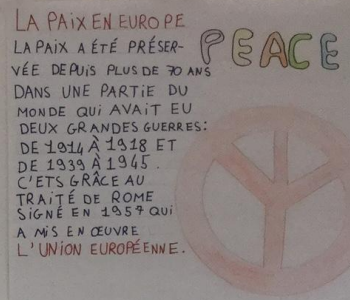 LA PAIX EN EUROPE
PEACE
LA PAIX A ÉTÉ PRÉSER-
VÉE DEPUIS PLUS DE 70 ANS
DANS UNE PARTIE DU
MONDE QUI AVAIT EU
DEUX GRANDES GUERRES:
DE 1914 À 1918 ET
DE 1939 À 1945.
C'ETS GRÂCE AU
TRAITÉ DE ROME
SIGNÉ EN 1957 QUI
A MIS EN ŒUVRE
L'UNION EUROPÉENNE.